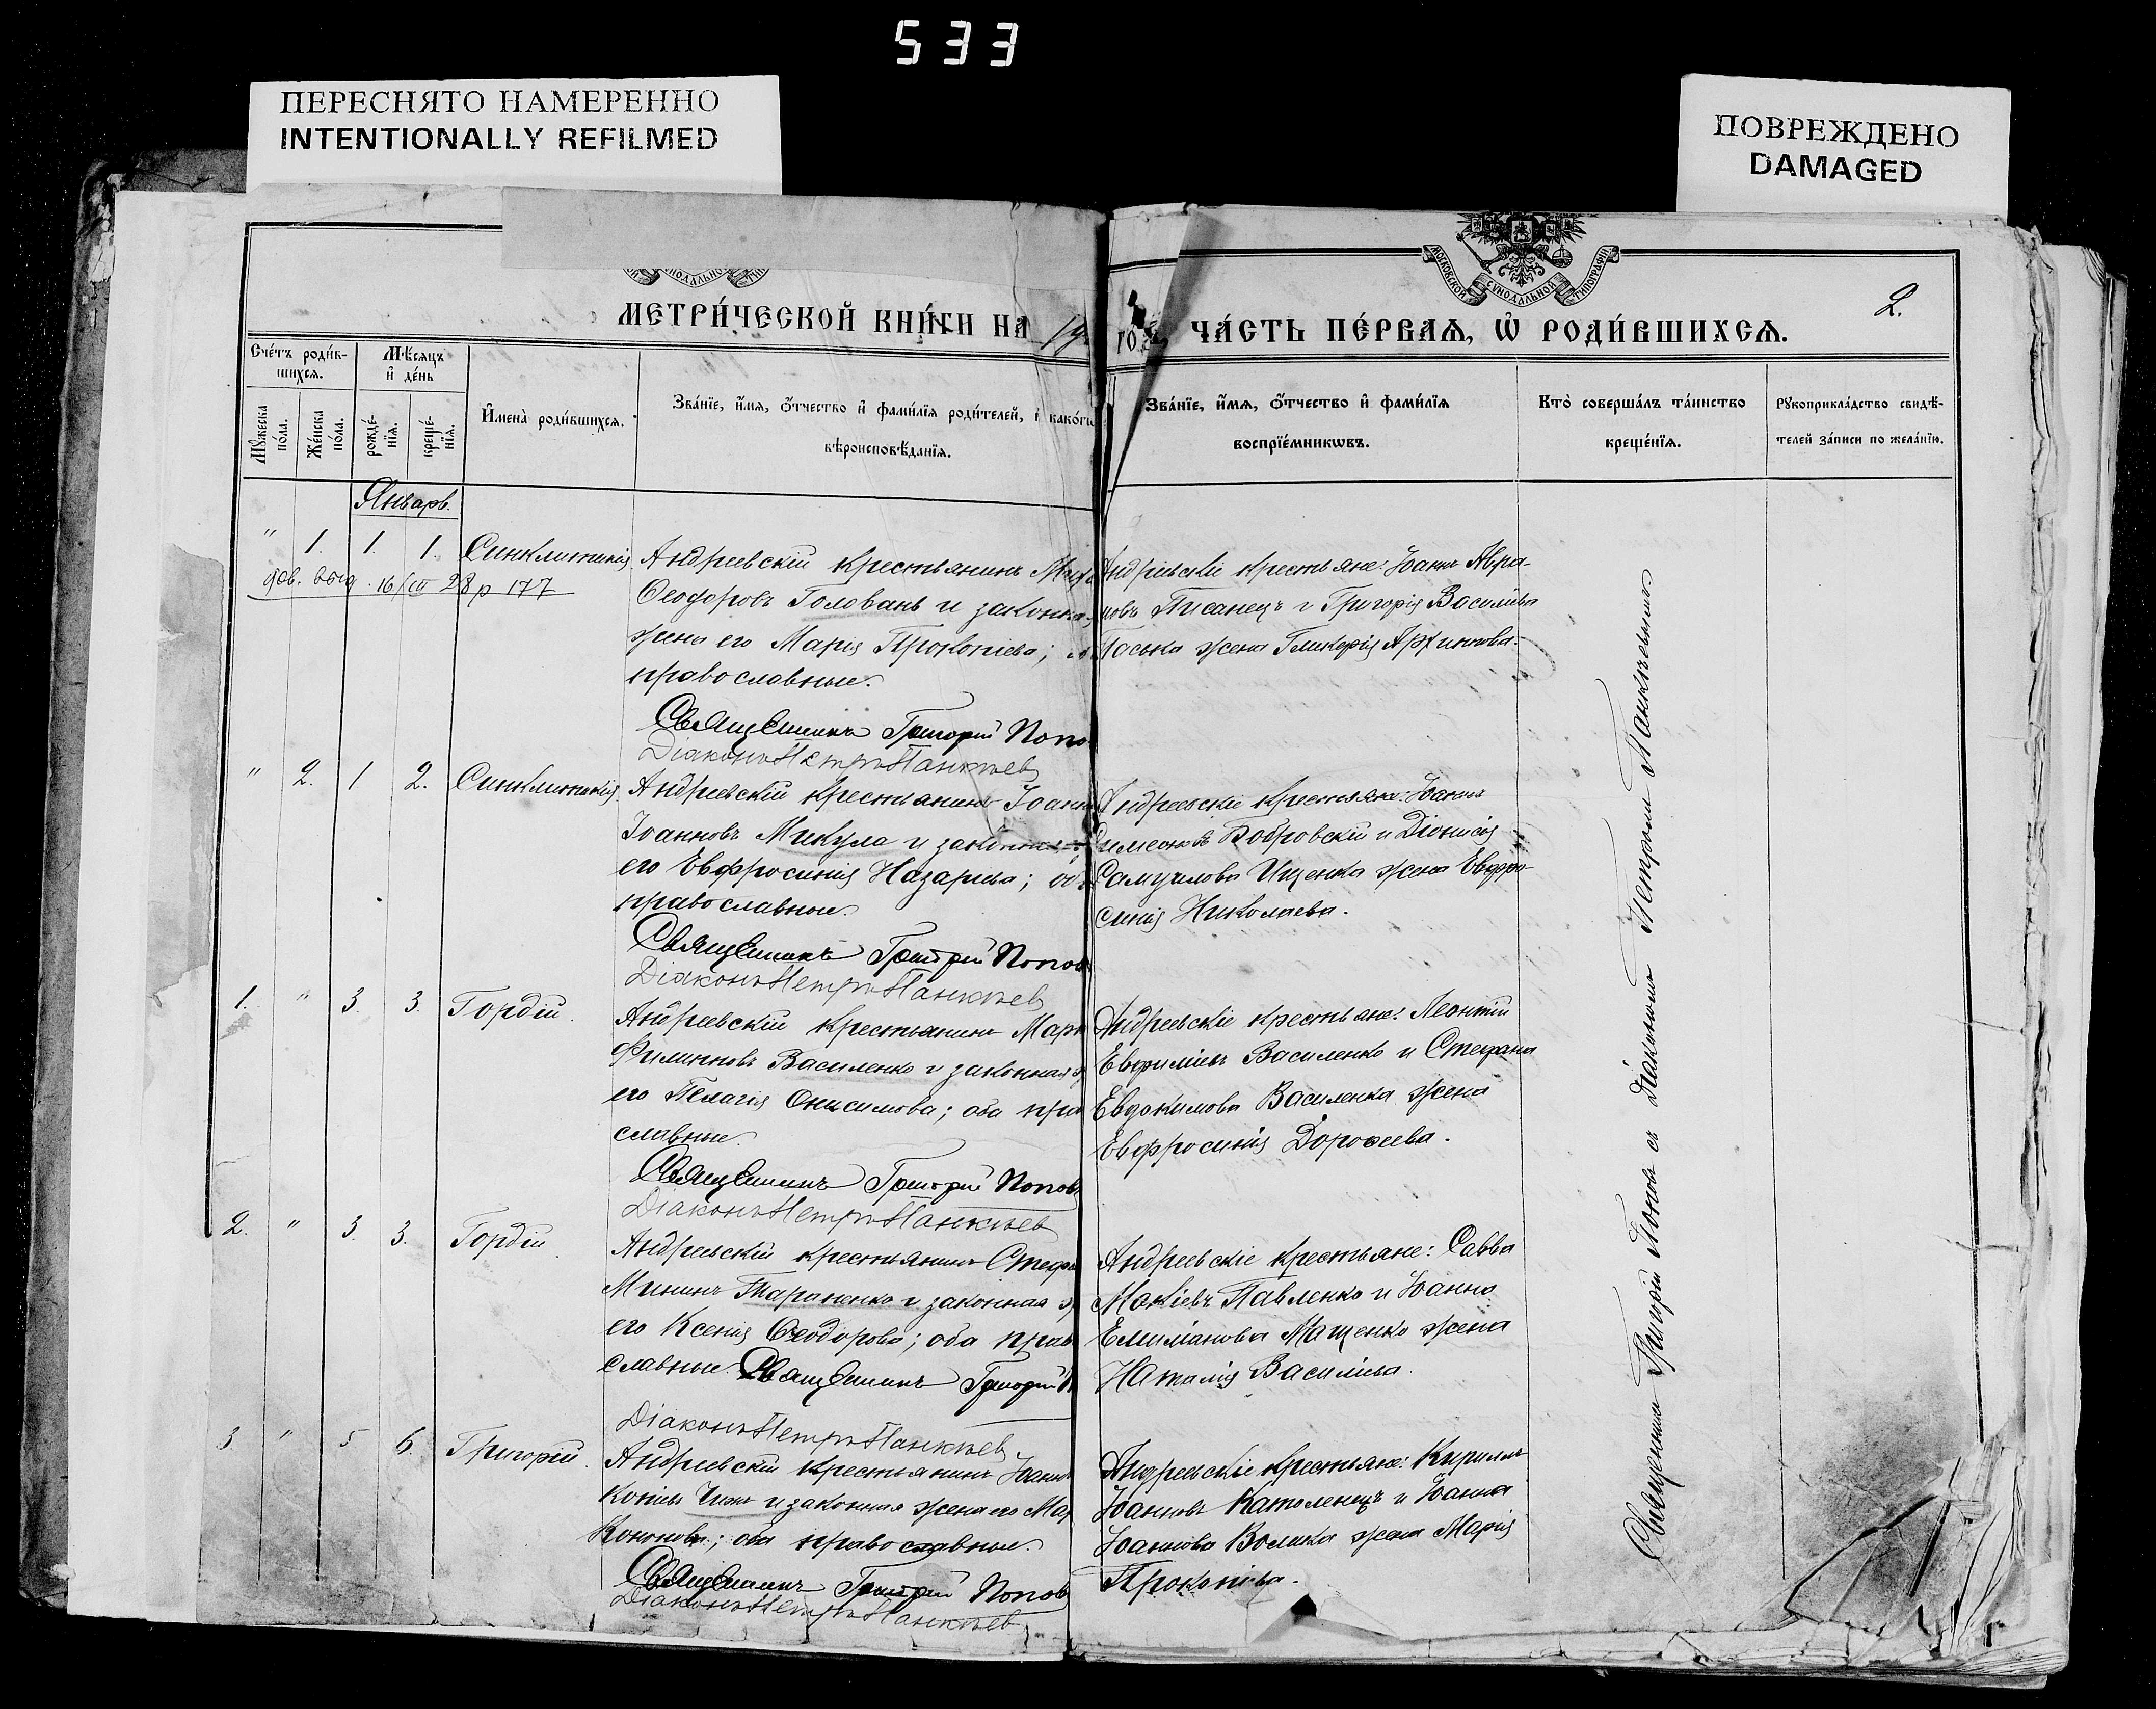 533
ПЕРЕСНЯТО НАМЕРЕННО
INTENTIONALLY REFILMED
ПОВРЕЖДЕНО
DAMAGED
МОСКОВСКОЙ СѴНОДАЛЬНОЙ ТИПОГРАФІИ
2.
МЕТРИ́ЧЕСКОЙ КНИ́ГИ НА 19
ЧА́СТЬ ПЕ́РВАЯ, Ѡ҆ РОДИ́ВШИХСЯ.
Сче́тъ роди́в-
шихся.
Мѣ́сяцъ
и҆ де́нь
Мꙋ́жеска
по́ла.
Же́нска
по́ла.
рожде́-
нїя.
креще́-
нїя.
И҆мена̀ роди́вшихся.
Зва́нїе, и҆́мя, о҆́тчество и҆ фами́лїя роди́телей, и҆ како́гѡ
вѣроисповѣ́данїя.
Зва́нїе, и҆́мя, о҆́тчество и҆ фами́лїя
воспрїе́мникѡвъ.
Кто̀ соверша́лъ та́инство
креще́нїя.
Рꙋкоприкла́дство свидѣ́-
телей за́писи по жела́нїю.
Январь.
" 1. 1. 1. Синклитикія.
16/III 28 р 177
Андреевскій крестьянинъ
Ѳеодоровъ Головань и законна
жена его Марія Прокопіева;
православные.
Священникъ Григорій Попо
Діаконъ Петръ Панкѣев
Андреевскіе крестьяне: Іоаннъ Авра-
мовъ Писанецъ и Григорія Василіева
жена Гликерія
" 2. 1 2. Синклитикія.
Андреевскій крестьянинъ Іоанн
Іоанновъ Микула и законная
его Евфросинія Назарьева; об
православные.
Священникъ Григорій Попов
Діаконъ Петръ Панкѣев
Андреевскіе крестьяне: Іоаннъ
Симеоновъ Бобровскій и Діонисія
Самуилова Ищенка жена Евфро-
синія Николаева.
1. " 3. 3. Гордій.
Андреевскій крестьянинъ Март
Филипповъ Василенко и законная
его Пелагія Онисимова; оба прав
славные.
Священникъ Григорій Попов
Діаконъ Петръ Панкѣев
Андреевскіе крестьяне: Леонтій
Евфиміевъ Василенко и Стефана
Евдокимова Василенка жена
Евфросинія Дороѳеева.
2. " 3. 3. Гордій.
Андреевскій крестьянинъ Стефа
Мининъ Тараненко и законная
его Ксенія Ѳеодорова; оба прав
славные. Священникъ Григорій П
Діаконъ Петръ Панкѣев
Андреевскіе крестьяне: Савва
Мокіевъ Павленко и Іоанна
Емиліанова Мащенко жена
Наталія Василіева.
3 " 5 6. Григорій.
Андреевскій крестьянинъ Іоанн
и законная жена его Мар
Кононова; оба православные.
Священникъ Григорій Попов
Діаконъ Петръ Панкѣев
Андреевскіе крестьяне: Кириллъ
Іоанновъ Католенецъ и Іоанна
Іоаннова Волика жена Марія
Прокопіева.
Священникъ Григорій Поповъ съ Діакономъ Петромъ Панкѣевымъ